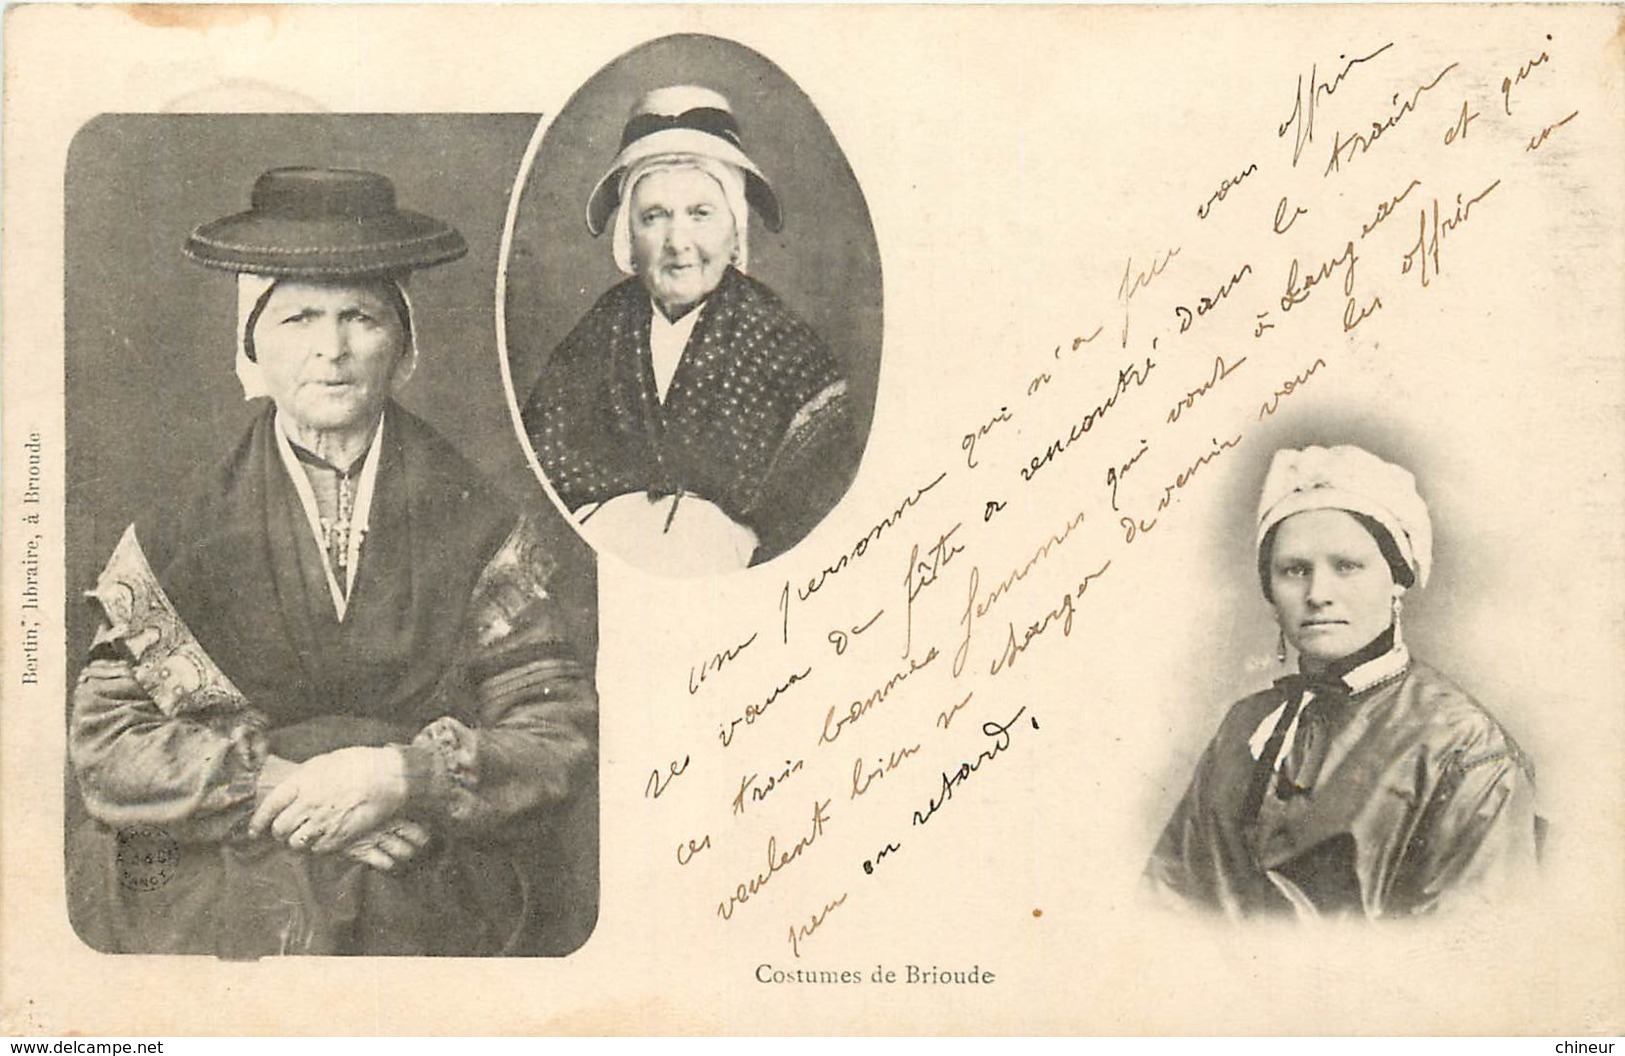 Bertin, libraire, à Brioude
une personne qui n'a pu vous offrir
ses vœux de fête a rencontré dans le train
ces trois bonnes femmes qui vont à Langeac et qui
veulent bien se charger de venir vous les offrir un
peu en retard,
Costumes de Brioude
https://www.delcampe.net
chineur